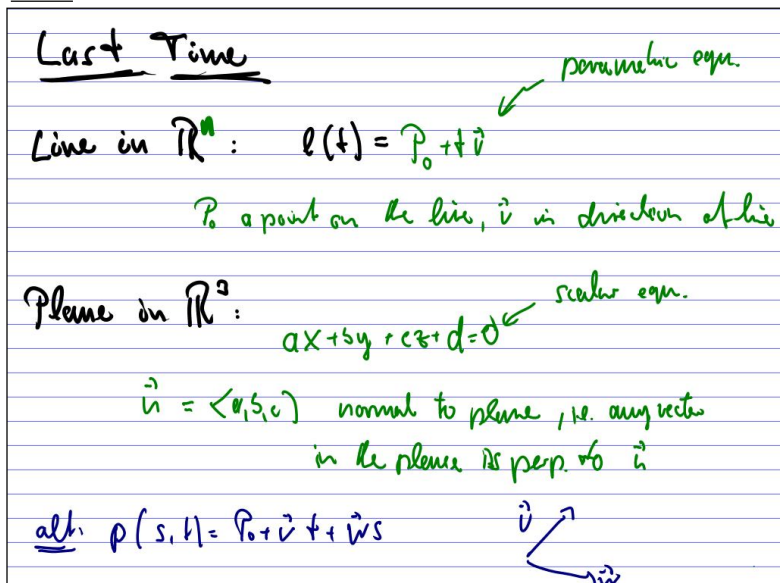 Last Time
parametric eqn.
Line in ℝⁿ: ℓ(t) = P₀ + t v⃗
P₀ a point on the line, v⃗ in direction of line
scalar eqn.
Plane in ℝ³:
ax + by + cz + d = 0
n⃗ = <a,b,c> normal to plane, i.e. any vector
in the plane is perp. to n⃗
alt. p(s,t) = P₀ + v⃗ t + w⃗ s
v⃗
w⃗